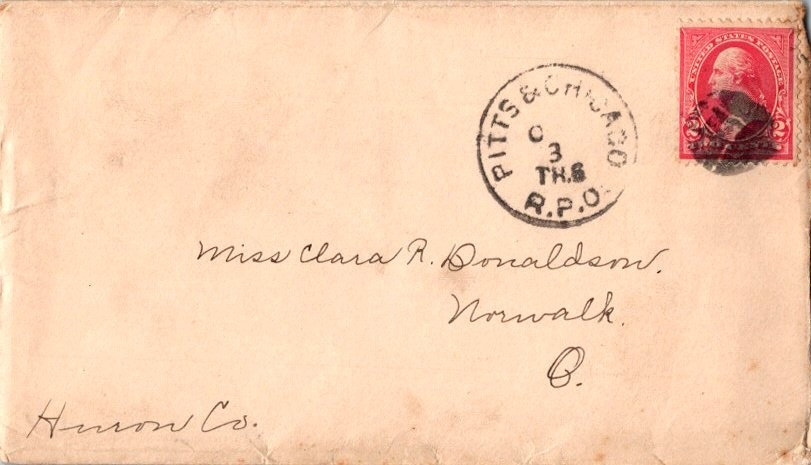 UNITED STATES POSTAGE
2 2
PITTS & CHICAGO
O
3
TR.6
R.P.O.
Miss Clara R. Donaldson.
Norwalk.
O.
Huron Co.